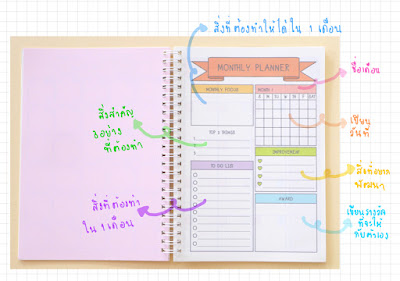 สิ่งที่ต้องทำให้ได้ใน 1 เดือน
MONTHLY PLANNER
MONTHLY FOCUS
MONTH :
S M T W T F S
ชื่อเดือน
สิ่งสำคัญ
3 อย่าง
ที่ต้องทำ
เขียน
วันที่
TOP 3 THINGS
TO DO LIST
IMPROVEMENT
สิ่งที่อยาก
พัฒนา
สิ่งที่ต้องทำ
ใน 1 เดือน
AWARD
เขียนรางวัล
ที่จะให้
กับตัวเอง